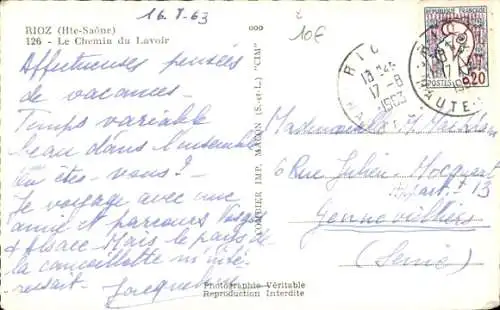 RIOZ (Hte-Saône)
126 - Le Chemin du Lavoir
16.8.63
10€
Affectueuses pensées
de vacances.
Temps variable
beau dans l'ensemble
Où êtes-vous?
Je voyage avec une
amie et parcours Vosges
+ Alsace. Mais le pays de
la cancoillotte m'inté-
ressait. Jacqueline
COMBIER IMP. MACON (S.-et-L.) "CIM"
Photographie Véritable
Reproduction Interdite
REPUBLIQUE FRANÇAISE
POSTES 0,20
RIOZ
18 H 45
17-8
1963
Mademoiselle H.
6 Rue Julien Mocquard
Appart. 13
Gennevilliers
(Seine)